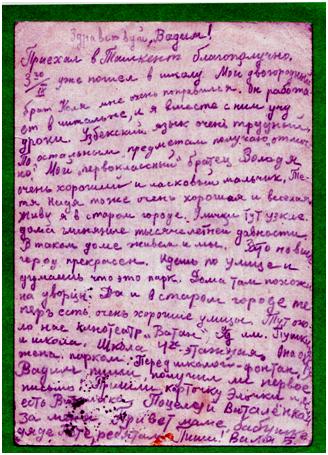 Здравствуй, Вадим!
Приехал в Ташкент благополучно.
3 30/IV уже пошел в школу. Мой двоюродный
брат Коля мне очень понравился. Он работа-
ет в читальне, и я вместе с ним учу
уроки. Узбекский язык очень трудный,
По остальным предметам получаю „отлич-
но". Мой „первоклассный" братец Володя
очень хороший и ласковый мальчик, Те-
тя Надя тоже очень хорошая и веселая.
Живу я в старом городе. Улички тут узкие.
дома глиняные тысячелетней давности.
В таком доме живем и мы. Зато новый
город прекрасен. Идешь по улице и
думаешь что это парк. Дома там похожи
на дворцы. Да и в старом городе те-
перь есть очень хорошие улицы. Тут око-
ло нас кинотеатр „Ватан", им. Пушки
и школа. Школа 4х-этажная. Она
жена парком. Перед школой-фонтан,
Вадим, пиши получил ли первое
письмо? Прими карточку
есть Виталька. Поцелуй Виталенька
за меня. Привет маме, бабушке
дяде Пете, ребятам. Пиши! Виля